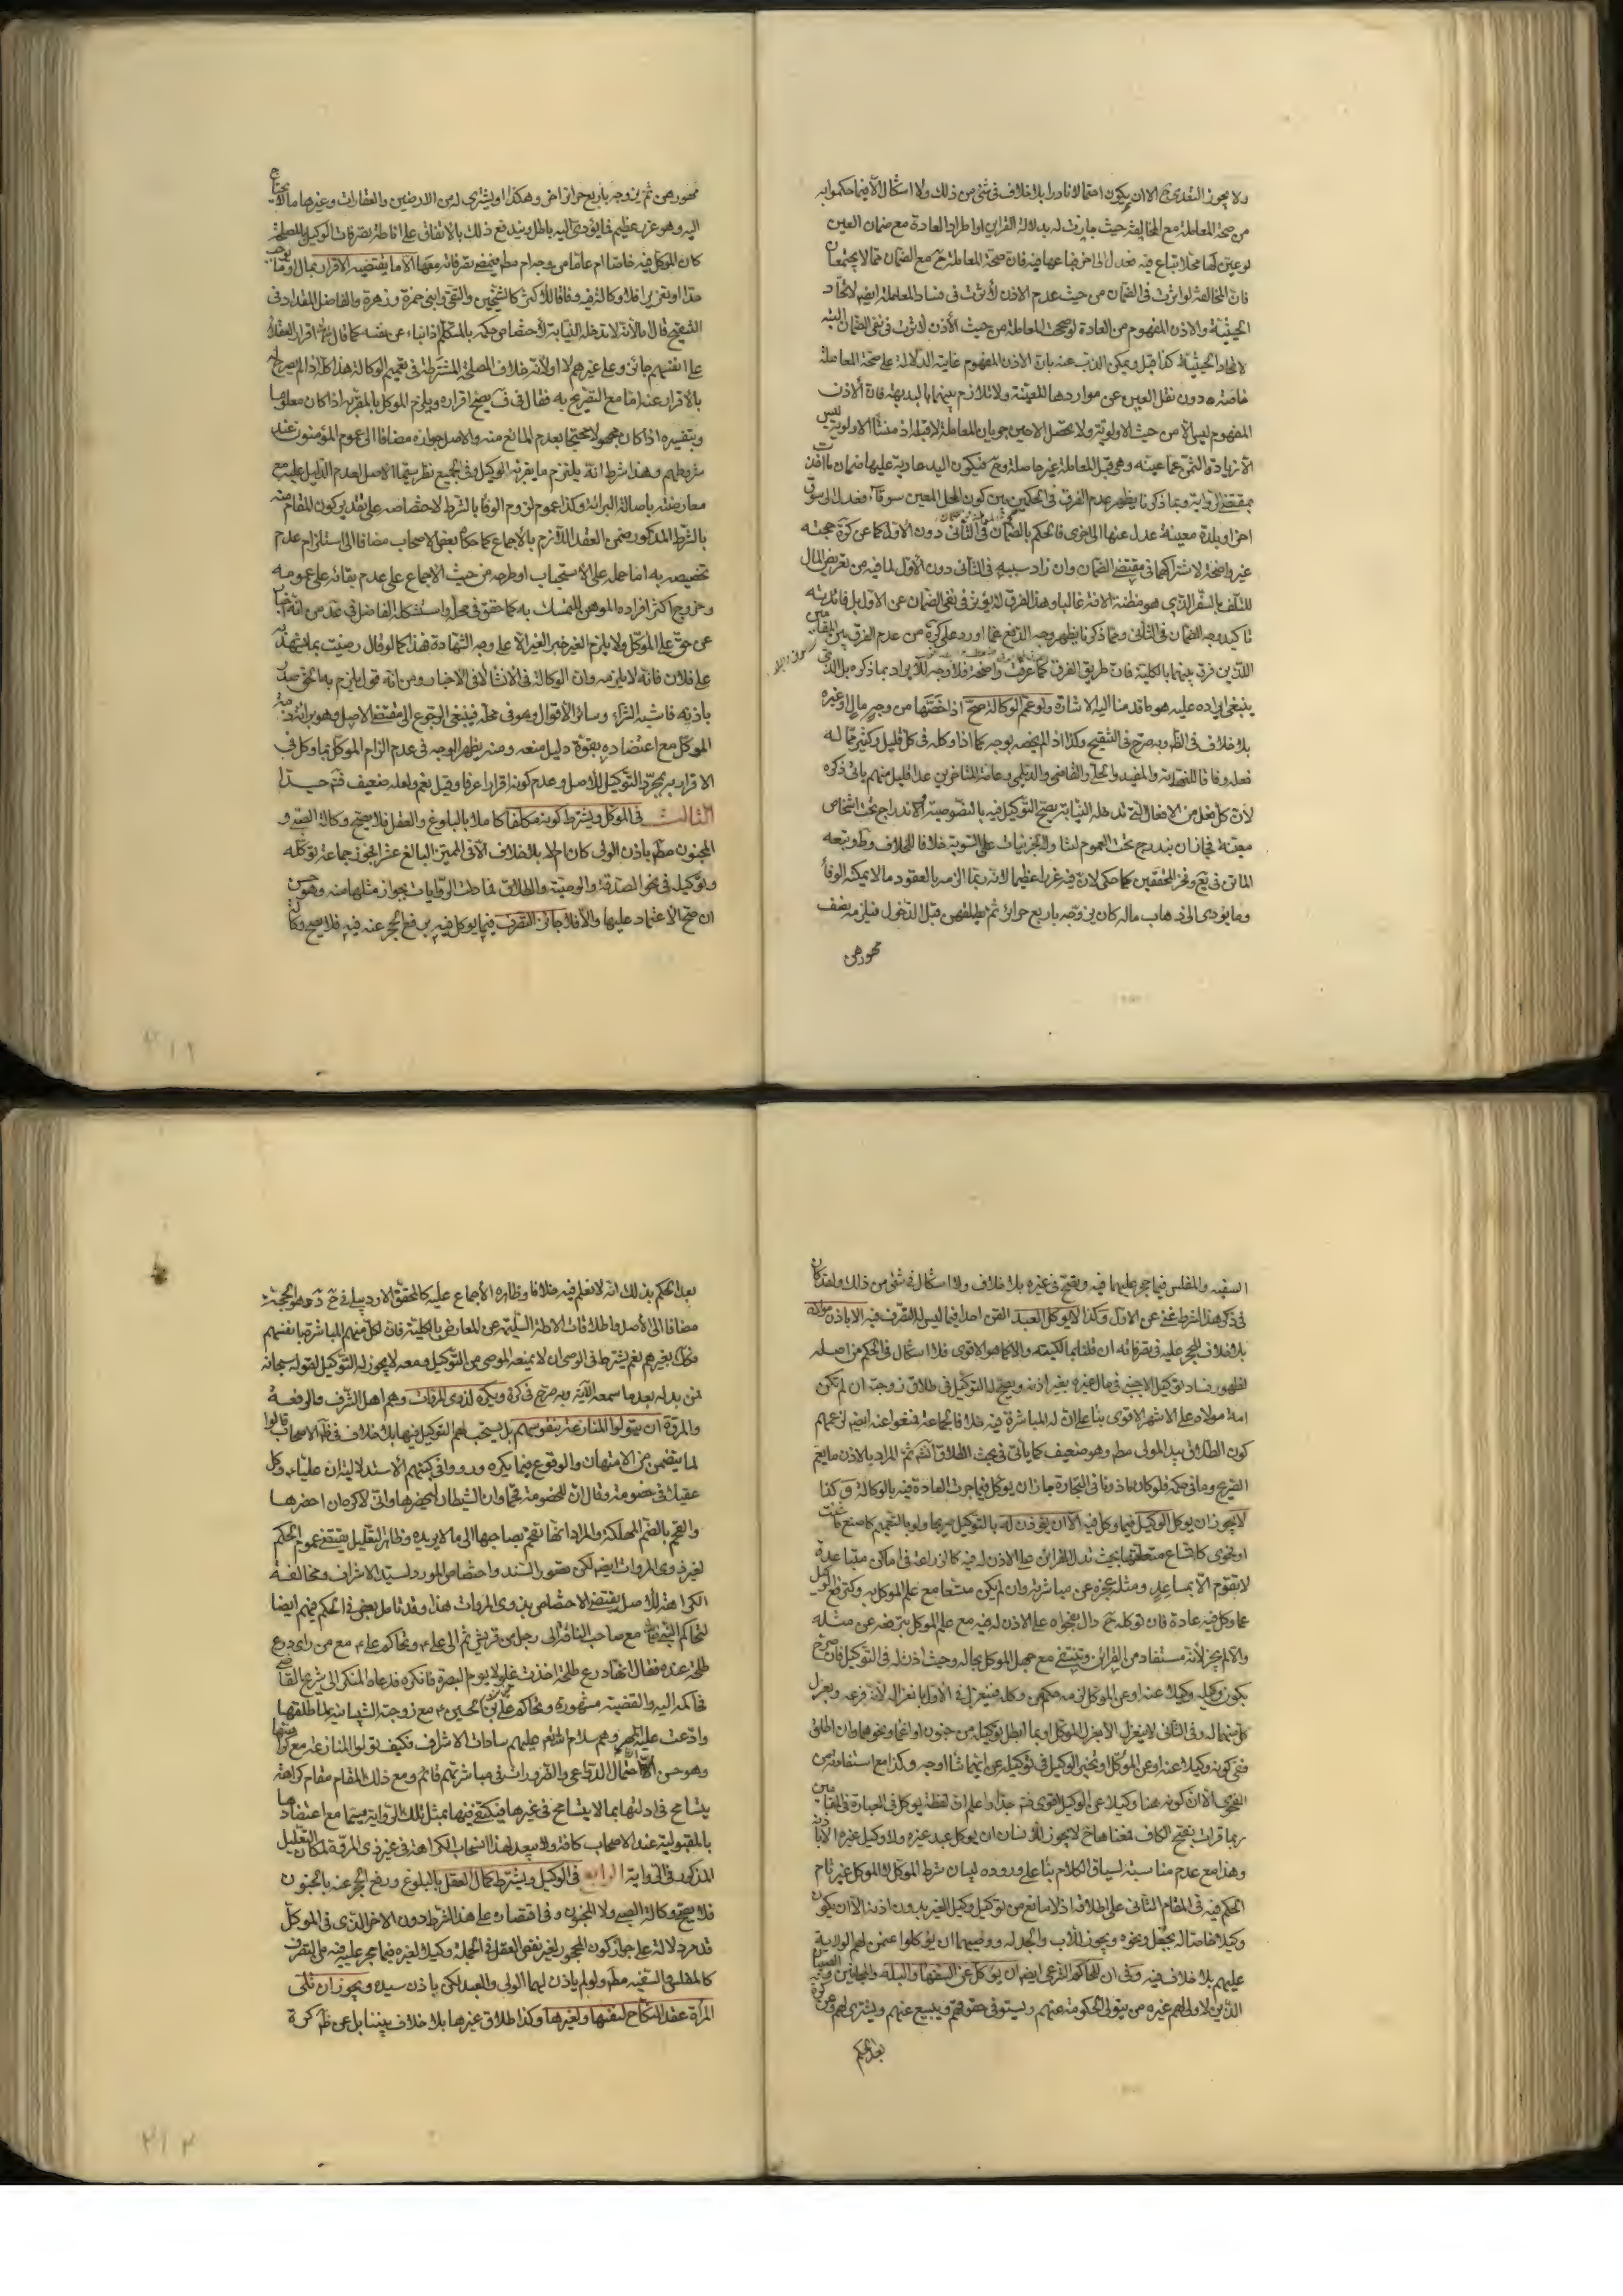 ولا يجوز التعدى ح الا ان يكون احتمالا نادرا بلا خلاف فى شئ من ذلك ولا اشكال الا فيما حكموا به
من صحة المعاملة مع المخالفة حيث جازت له بدلالة القراين او اطراد العادة مع ضمان العين
لو عين لها محلا تباع فيه فعدل الى اخر فباعها فيه فان صحة المعاملة ح مع الضمان مما لا يجتمعان
فان المخالفة لو اثرت فى الضمان من حيث عدم الاذن لأثرت فى فساد المعاملة ايضا لاتحاد
الحيثية والاذن المفهوم من العادة لو صححت المعاملة من حيث الأذن لاثرت فى نفى الضمان البتة
لاتحاد الحيثية كذا قيل ويمكن الذب عنه بان الاذن المفهوم غايته الدلالة على صحة المعاملة
خاصة دون نقل العين عن مواردها المعينة ولا تلازم بينهما بالبديهة فان الأذن
المفهوم ليس الا من حيث الاولوية ولا تحصل الا حين جريان المعاملة لا قبله اذ منشأ الاولوية ليس
الا زيادة الثمن عما عينه وهى قبل المعاملة غير حاصلة وح فيكون اليد عادية عليها ضمان ما اخذت
بمقتضى الرواية وبما ذكرنا يظهر عدم الفرق فى الحكمين بين كون المحل المعين سوقا فعدل الى سوق
اخر او بلدة معينة عدل عنها الى اخرى فالحكم بالضمان فى الثانى دون الاول كما عن كرة حجته
غير واضحة لاشتراكهما فى مقتضى الضمان وان زاد سببه فى الثانى دون الأول لما فيه من تعريض المال
للتلف بالسفر الذى هو مظنة الافة غالبا وهذا الفرق لا يؤثر فى نفى الضمان عن الاول بل فائدته
تاكيد وجه الضمان فى الثانى ومما ذكرنا يظهر وجه الدفع عما اورد على كرة من عدم الفرق بين المقامين
اللذين فرق بينهما بالكلية فان طريق الفرق كما عرفت واضحة فلا وجه للايراد بما ذكره بل الذى
ينبغى ايراده عليه هو ما قدمنا اليه الاشارة ولو عمم الوكالة صح اذا خصها من وجه مال او غيره
بلا خلاف فى الظ وبه صرح فى التنقيح وكذا اذا لم يخصه بوجه كما اذا وكله فى كل قليل وكثير مما له
فعله وفاقا للنهاية والمفيد والحلى والقاضى والديلمى وعامة المتاخرين عدا قليل منهم ياتى ذكره
لأن كل فعل من الافعال التى تدخله النيابة يصح التوكيل فيه بالخصوصية لاندراج تحت اشخاص
معينة فجاز ان يندرج تحت العموم لتناوله الجزئيات على السوية خلافا للخلاف وط وتبعه
الماتن فى يع وفخر المحققين كما حكى لان فيه غررا عظيما لانه ربما الزمه بالعقود ما لا يمكنه الوفأ
وما يؤدى الى ذهاب ماله كان يزوجه باربع حرائر ثم يطلقهن قبل الدخول فيلزمه نصف
مهورهن
مهورهن ثم يزوجه باربع حرائر اخر وهكذا او يشترى له من الارضين والعقارات وغيرها ما لا يحتاج
اليه وهو غرر عظيم فما يؤدى اليه باطل ويندفع ذلك بالاتفاق على اناطة تصرفات الوكيل بالمصلحة
كان الموكل فيه خاصا ام عاما من وجه ام مط فيمضى تصرفاته معها الا ما يقتضيه الاقرار بمال او ما يوجب
حدا او تعزيرا فلا وكالة فيه وفاقا للأكثر كالشيخين والتقى وابنى حمزة وزهرة والفاضل المقداد فى
التنقيح قال ما لأنه لا تدخله النيابة لأختصاص حكمه بالمتكلم اذا نباء عن نفسه كما قال اقرار العقلاء
على انفسهم جائز وعلى غيرهم لا او لأنه خلاف المصلحة المشترطة فى تعميم الوكالة هذا كله اذا لم يصرح له
بالأقرار عنه اما مع التصريح به فقال فى ف يصح اقراره ويلزم الموكل بالمقر به اذا كان معلوما
وبتفسيره اذا كان مجهولا محتجا بعدم المانع منه والاصل جوازه مضافا الى عموم المؤمنون عند
شروطهم وهذا شرط انه يلتزم ما يقر به الوكيل وفى الجميع نظر سيما الاصل لعدم الدليل عليه مع
معارضته باصالة البرائة وكذا عموم لزوم الوفأ بالشرط لاختصاصه على تقدير كون المقام منه
بالشرط المذكور ضمن العقد اللازم بالأجماع كما حكاه بعض الاصحاب مضافا الى استلزام عدم
تخصيصه به اما حمله على الأستحباب او طرحه من حيث الاجماع على عدم بقائه على عمومه
وخروج اكثر افراده الموهن للتمسك به كما حقق فى محله واستشكله الفاضل فى عد من انه اخبار
عن حق على الموكل ولا يلزم الغير خبر الغير الا على وجه الشهادة فهذا كما لو قال رضيت بما يشهد به
على فلان فانه لا يلزمه وان الوكالة فى الأنشأ لا فى الأخبار ومن انه قول يلزم به الحق صدر
باذنه فاشبه الشراء وسائر الأقوال وهو فى محله فينبغى الرجوع الى مقتضى الاصل وهو برائة ذمة
الموكل مع اعتضاده بقوة دليل منعه ومنه يظهر الوجه فى عدم الزام الموكل بما وكل فى
الاقرار به بمجرد التوكيل للاصل وعدم كونه اقرارا عرفا وقيل نعم ولعله ضعيف فتم جدا
الثالث فى الموكل ويشترط كونه مكلفا كاملا بالبلوغ والعقل فلا يصح وكالة الصبى و
المجنون مط باذن الولى كان ام لا بلا خلاف الا فى المميز البالغ عشرا فجوز جماعة توكله
وتوكيله فى نحو الصدقة والوصية والطلاق مفادات الروايات بجواز مثلها منه وهو حسن
ان صح الاعتماد عليها والا فلا جائز التصرف فيما يوكل فيه برفع الحجر عنه فيه فلا يصح وكالة
السفيه والمفلس فيما حجر عليهما فيه وتصح فى غيره بلا خلاف ولا اشكال فى شئ من ذلك ولقد كان
فى ذكر هذا الشرط غنى عن الأول وكذا لا يوكل العبد القن احدا فيما ليس له التصرف فيه الا باذن مولاه
بلا خلاف للحجر عليه فى تصرفاته ان قلنا بمالكيته والا كما هو الاقوى فلا اشكال فى الحكم من اصله
لظهور فساد توكيل الاجنبى فى مال غيره بغير اذنه ويصح له التوكيل فى طلاق زوجته ان لم تكن
امة مولاه على الاشهر الاقوى بنأ على ان له المباشرة فيه خلافا لجماعة فمنعوا عنه ايضا لزعمهم
كون الطلاق بيد المولى مط وهو ضعيف كما يأتى فى بحث الطلاق انشه ثم المراد بالاذن ما يعم
الصريح وما فى حكمه فلو كان ماذونا فى التجارة جاز ان يوكل فيما جرت العادة فيه بالوكالة وكذا
لا يجوز ان يوكل الوكيل فيما وكل فيه الا ان يؤذن له بالتوكيل صريحا ولو بالتعميم كاصنع ما شئت
او فحوى كاتساع متعلقها بحيث تدل القرائن على الاذن له فيه كالزراعة فى اماكن متباعدة
لا تقوم الا بمساعد ومثله عجزه عن مباشرته وان لم يكن متسعا مع علم الموكل به وكترفع الوكيل
عما وكل فيه عادة فان توكله ح دال بفحواه على الاذن له فيه مع علم الموكل بترفعه عن مثله
والا لم يجز لأنه مستفاد من القرائن وينتفى مع جهل الموكل بحاله وحيث اذن له فى التوكيل فان صرح
بكون وكيله وكيلا عنه او عن الموكل لزمه حكم من وكله فينعزل فى الاول بانعزاله لأنه فرعه وبعزل
كل منهما له وفى الثانى لا ينعزل الا بعزل الموكل او بما ابطل توكيله من جنون او اغماء ونحوهما وان اطلق
ففى كونه وكيلا عنه او عن الموكل او تخير الوكيل فى توكيله عن ايهما شأ اوجه وكذا مع استفادته من
الفحوى الا ان كونه هنا وكيلا عن الوكيل اقوى فتم جدا واعلم ان لفظة يوكل فى العبارة فى المقامين
ربما قرات بفتح الكاف فمعناها ح لا يجوز للانسان ان يوكل عبد غيره ولا وكيل غيره الا باذنه
وهذا مع عدم مناسبته لسياق الكلام بنأ على وروده لبيان شرط الموكل لا الموكل غير تام
الحكم فيه فى المقام الثانى على اطلاقه اذ لا مانع من توكيل وكيل الغير بدون اذنه الا ان يكون
وكيلا خاصا له بجعل ونحوه ويجوز للأب والجد له ووصيهما ان يوكلوا عمن لهم الولاية
عليهم بلا خلاف فيه وفى ان للحاكم الشرعى ايضا ان يوكل عن السفهأ والبله والمجانين والصبيان
الذين لا ولى لهم غيره من يتولى الحكومة عنهم ويستوفى حقوقهم ويبيع عنهم ويشترى لهم وعن كرة
بعد الحكم
بعد الحكم بذلك انه لا نعلم فيه خلافا وظاهره الأجماع عليه كالمحقق الاردبيلى فى ح د وهو الحجة
مضافا الى الأصل واطلاقات الادلة السليمة عن المعارض بالكلية فان لكل منهم المباشرة بانفسهم
فكذا بغيرهم نعم يشترط فى الوصى ان لا يمنعه الموصى من التوكيل ومعه لا يجوز له التوكيل لقوله سبحانه
فمن بدله بعد ما سمعه الآية وبه صرح فى كرة ويكره لذوى المروات وهم اهل الشرف والرفعة
والمروة ان يتولوا المنازعة بنفوسهم بل يستحب لهم التوكيل فيها بلا خلاف فى ظ الاصحاب قالوا
لما يتضمن من الامتهان والوقوع فيما يكره ورووا فى كتبهم الأستدلالية ان عليا ع وكل
عقيلا فى خصومة وقال ان للخصومة قحما وان الشيطان ليحضرها وانى لأكره ان احضرها
والقحم بالضم المهلكة والمراد انها تقحم بصاحبها الى ما لا يريده وظاهر التعليل يقتضى عموم الحكم
لغير ذوى المروات ايضا لكن قصور السند واختصاص المورد بسيد الاشراف ومخالفة
الكراهة للأصل يقتضى الاختصاص بذوى المروات هذا وقد تامل بعض فى الحكم فيهم ايضا
لتحاكم النبى مع صاحب الناقة الى رجل من قريش ثم الى على ع وتحاكم على ع مع من راى درع
طلحة عنده فقال انها درع طلحة اخذت غلولا يوم البصرة فانكره فدعاه المنكر الى شريح القاضى
فحاكمه اليه والقضية مشهورة وتحاكم على بن الحسين ع مع زوجته الشيبانية لما طلقها
وادعت عليه المهر وهم سلام الله عليهم سادات الاشراف فكيف تولوا المنازعة مع كراهتها
وهو حسن الا ان احتمال الدواعى والضرورات فى مباشرتهم قائم ومع ذلك المقام مقام كراهة
يتسامح فى ادلتها بما لا يتسامح فى غيرها فيكتفى فيها بمثل تلك الرواية سيما مع اعتضادها
بالمقبولية عند الاصحاب كافة ولا يبعد لهذا انسحاب الكراهة فى غير ذى المروة لمكان التعليل
المذكور فى الرواية الرابع فى الوكيل ويشترط كمال العقل بالبلوغ ورفع الحجر عنه بالجنون
فلا يصح وكالة الصبى ولا المجنون وفى اقتصاره على هذا الشرط دون الاخر الذى فى الموكل
قد مر دلالة على جواز كون المحجور لغير نقص العقل فى الجملة وكيلا لغيره فيما حجر عليه فيه من التصرف
كالمفلس والسفيه مط ولو لم ياذن لهما الولى والعبد لكن باذن سيده ويجوز ان تلى
المرأة عقد النكاح لنفسها ولغيرها وكذا طلاق غيرها بلا خلاف بيننا بل عن ظ كرة